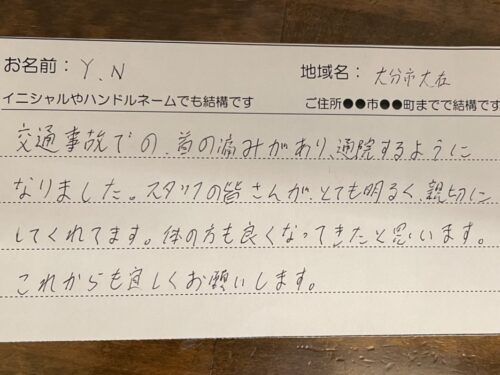 お名前：Y.N 地域名：大分市大在
イニシャルやハンドルネームでも結構です ご住所●●市●●町までで結構です
交通事故での、首の痛みがあり、通院するように
なりました。スタッフの皆さんが、とても明るく、親切に
してくれてます。体の方も良くなってきたと思います。
これからも宜しくお願いします。